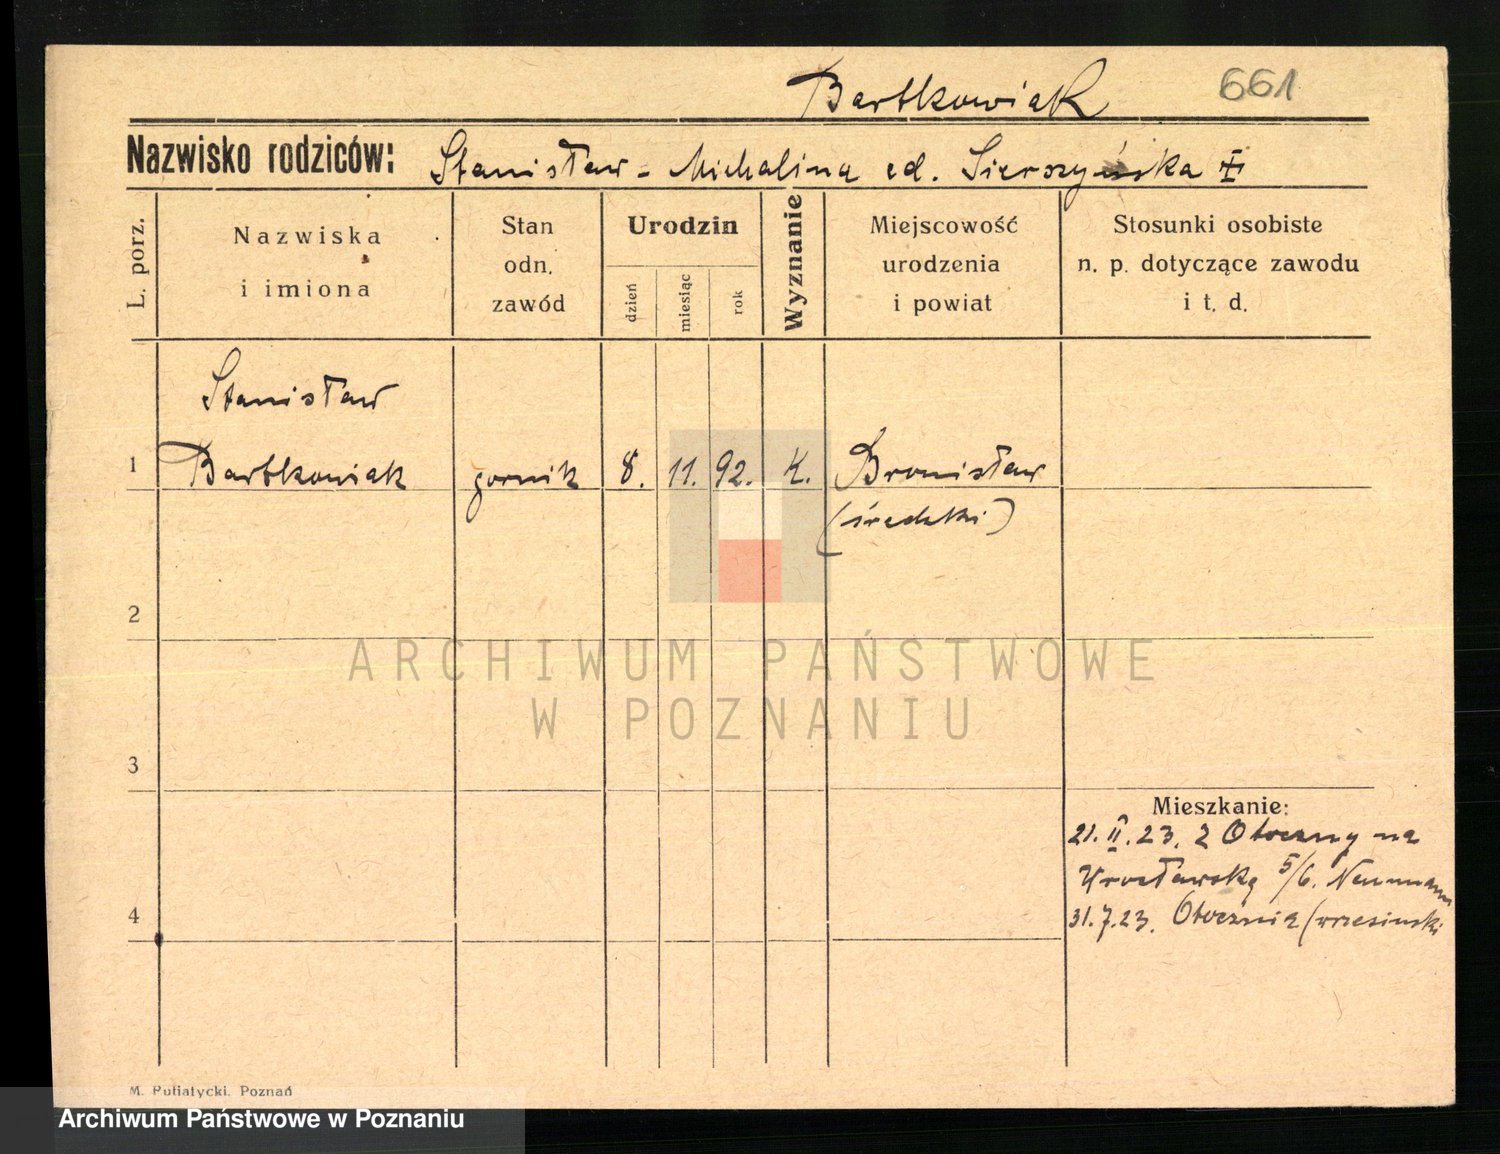 Bartkowiak 661
Nazwisko rodziców: Stanisław - Michalina cd. Sierszyńska
L. porz.
Nazwiska
i imiona
Stan
odn.
zawód
Urodzin
dzień
miesiąc
rok
Wyznanie
Miejscowość
urodzenia
i powiat
Stosunki osobiste
n. p. dotyczące zawodu
i t. d.
Stanisław
1 Bartkowiak gornik 8. 11. 92. K. Bronisław
(średzki)
2
ARCHIWUM PAŃSTWOWE
W POZNANIU
3
Mieszkanie:
21.II.23. z Otoczny na
Wrocławską 5/6. Neumann
4
31.7.23. Otocznia (wrzesinski
M. Putiatycki. Poznań
Archiwum Państwowe w Poznaniu